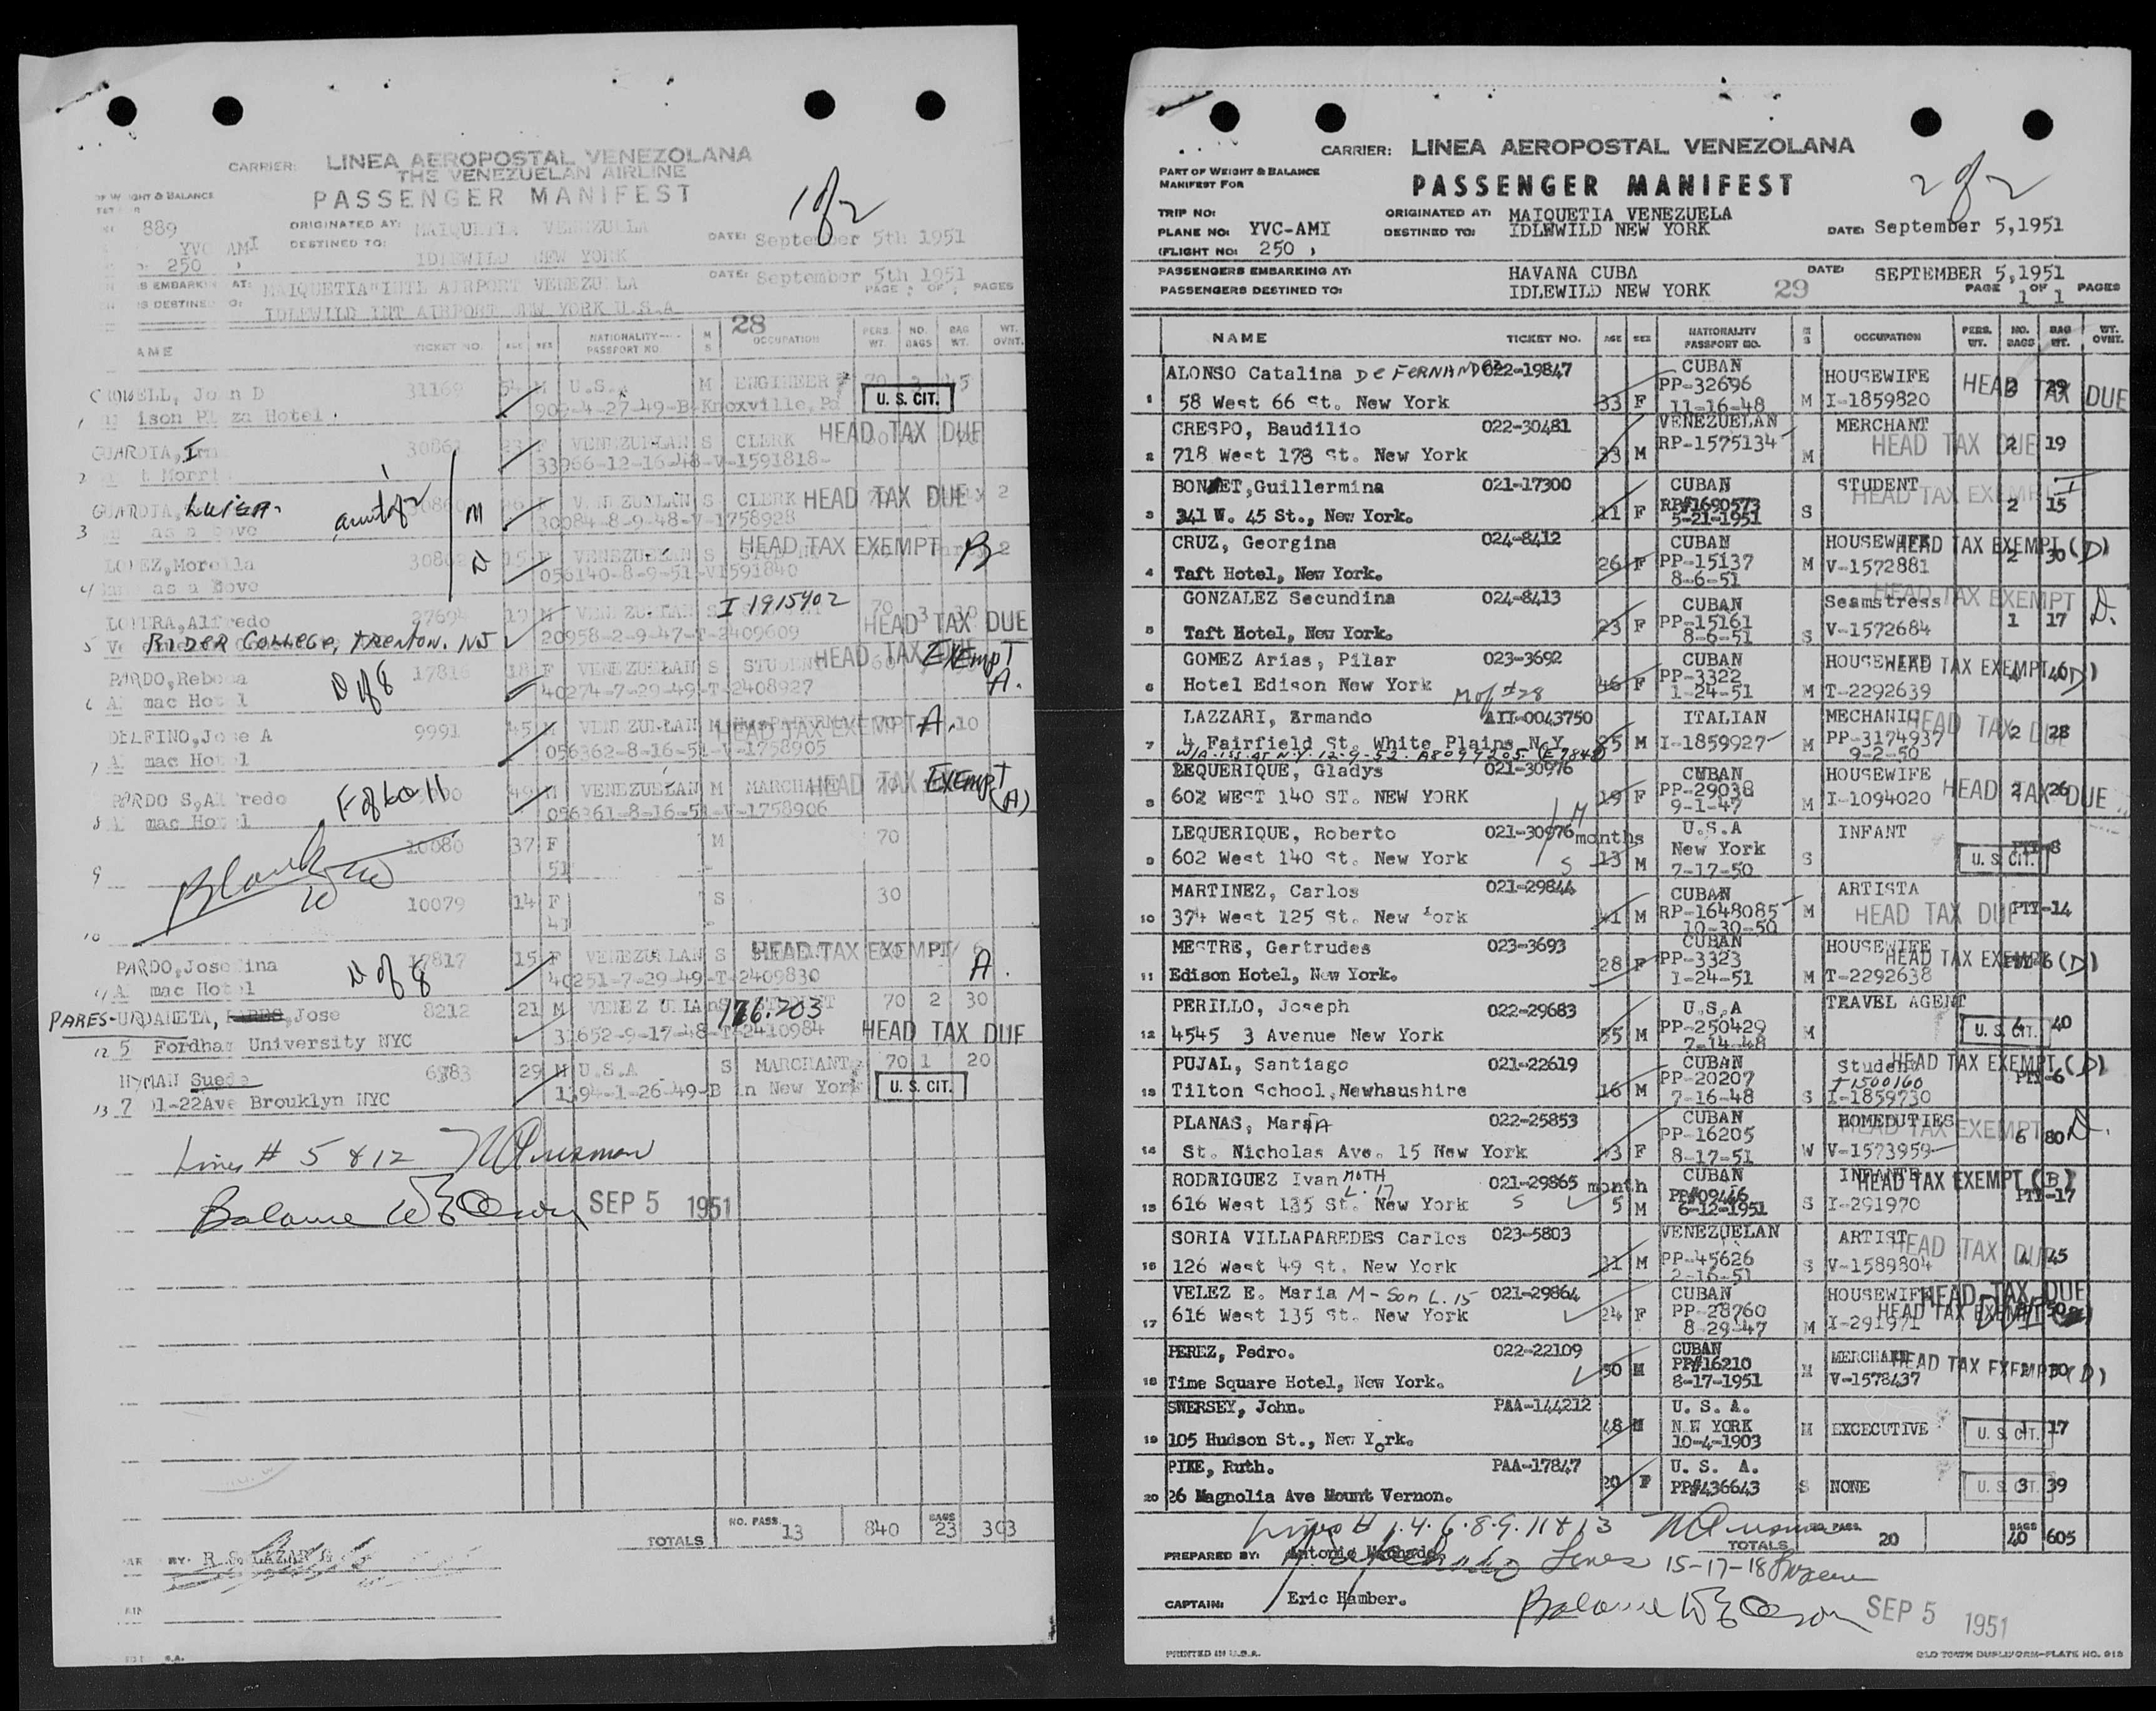 CARRIER: LINEA AEROPOSTAL VENEZOLANA
THE VENEZUELAN AIRLINE
PASSENGER MANIFEST
1 of 2
889
ORIGINATED AT: MAIQUETIA VENEZUELA
DATE: September 5th 1951
YVC AMI
DESTINED TO: IDLEWILD NEW YORK
250
DATE: September 5th 1951
AT: MAIQUETIA INTL AIRPORT VENEZUELA
PAGE OF PAGES
IDLEWILD INT AIRPORT NEW YORK U.S.A
28
AME TICKET NO. AGE SEX NATIONALITY PASSPORT NO. M S OCCUPATION PERS. WT. NO. BAGS BAG WT. WT. OVNT.
31169 54 M U.S.A M ENGINEER 70 3
1 ison Pl za Hotel. 909-4-27-49-B-Knoxville, Pa U. S. CIT.
GUARDIA, I 30861 23 F VENEZUELAN S CLERK HEAD TAX DUE
2 33966-12-16-48-V-1591818-
GUARDIA, LUISA- aunt of 2 M VENEZUELAN S CLERK HEAD TAX DUE 2
3 as a bove 30084-8-9-48-V-1758928
LOPEZ, Morella 30862 15 F VENEZUELAN S HEAD TAX EXEMPT B 2
4 as a bove 056140-8-9-51-V1591840
Alfredo 27694 19 M VENEZUELAN S I 1915402 70 3 30
5 RIDER COLLEGE, TRENTON. NJ 20958-2-9-47-T-2409609 HEAD TAX DUE
PARDO, Rebeca D of 8 17816 18 F VENEZUELAN S STUDENT HEAD TAX EXEMPT A.
6 mac Hotel 40274-7-29-49-T-2408927
DELFINO, Jose A 9991 45 M VENEZUELAN M HEAD TAX EXEMPT A. 10
7 mac Hotel 056362-8-16-51-V-1758905
PARDO S, Alfredo F of 6 & 11 49 M VENEZUELAN M MARCHANT HEAD TAX EXEMPT (A)
8 mac Hotel 056361-8-16-51-V-1758906
9 10080 37 F M 70
51
Blank
10 10079 14 F S 30
PARDO, Josefina D of 8 17817 15 F VENEZUELAN S HEAD TAX EXEMPT A.
11 mac Hotel 40251-7-29-49-T-2409830
PARES-URDANETA, Jose 8212 21 M VENEZUELAN S 176.203 70 2 30
12 5 Fordham University NYC 31652-9-17-48-T-2410984 HEAD TAX DUE
HYMAN Suede 29 M U.S.A S MARCHANT 70 1 20
13 7 01-22Ave Brouklyn NYC 1394-1-26-49-B in New York U. S. CIT.
Lines # 5 & 12
Balance SEP 5 1951
TOTALS NO. PASS. 13 840 BAGS 23 303
BY: R.S. LAZAR
CARRIER: LINEA AEROPOSTAL VENEZOLANA
PART OF WEIGHT & BALANCE
MANIFEST FOR
PASSENGER MANIFEST
2 of 2
TRIP NO:
ORIGINATED AT: MAIQUETIA VENEZUELA
PLANE NO: YVC-AMI
DESTINED TO: IDLEWILD NEW YORK
DATE: September 5,1951
(FLIGHT NO: 250 )
PASSENGERS EMBARKING AT: HAVANA CUBA
DATE: SEPTEMBER 5,1951
PASSENGERS DESTINED TO: IDLEWILD NEW YORK
29
PAGE 1 OF 1 PAGES
NAME TICKET NO. AGE SEX NATIONALITY PASSPORT NO. M S OCCUPATION PERS. WT. NO. BAGS BAG WT. WT. OVNT.
ALONSO Catalina De FERNANDEZ 022-19847 CUBAN HOUSEWIFE HEAD TAX DUE
1 58 West 66 St. New York 33 F PP-32696 11-16-48 M I-1859820 2 29
CRESPO, Baudilio 022-30481 VENEZUELAN MERCHANT HEAD TAX DUE
2 718 West 178 St. New York 33 M RP-1575134 M 2 19
BONNET,Guillermina 021-17300 CUBAN STUDENT HEAD TAX EXEMPT I
3 341 W. 45 St., New York. 11 F RP#1690573 5-21-1951 S 2 15
CRUZ, Georgina 024-8412 CUBAN HOUSEWIFE HEAD TAX EXEMPT (D)
4 Taft Hotel, New York. 26 F PP-15137 8-6-51 M V-1572881 2 30
GONZALEZ Secundina 024-8413 CUBAN Seamstress HEAD TAX EXEMPT D.
5 Taft Hotel, New York. 23 F PP-15161 8-6-51 S V-1572684 1 17
GOMEZ Arias, Pilar 023-3692 CUBAN HOUSEWIFE HEAD TAX EXEMPT (D)
6 Hotel Edison New York M of #28 46 F PP-3322 1-24-51 M T-2292639 4 46
LAZZARI, Armando AII-0043750 ITALIAN MECHANIC HEAD TAX DUE
7 4 Fairfield St. White Plains N.Y 25 M I-1859927 M PP-3174937 9-2-50 2 28
W/A-ISS. AT N.Y. 12-9-52. A8099205 (E7848)
LEQUERIQUE, Gladys 021-30976 CUBAN HOUSEWIFE
8 602 WEST 140 ST. NEW YORK 19 F PP-29038 9-1-47 M I-1094020 HEAD TAX DUE 2 26
LEQUERIQUE, Roberto 021-30976 months U.S.A INFANT
9 602 West 140 St. New York S 13 M New York 7-17-50 S U. S. CIT. PTY-8
MARTINEZ, Carlos 021-29844 CUBAN ARTISTA
10 374 West 125 St. New York 41 M RP-1648085 10-30-50 M HEAD TAX DUE PTY-14
MESTRE, Gertrudes 023-3693 CUBAN HOUSEWIFE
11 Edison Hotel, New York. 28 F PP-3323 1-24-51 M T-2292638 HEAD TAX EXEMPT (D)
PERILLO, Joseph 022-29683 U.S.A TRAVEL AGENT
12 4545 3 Avenue New York 55 M PP-250429 7-14-48 M U. S. CIT. 4 40
PUJAL, Santiago 021-22619 CUBAN Student HEAD TAX EXEMPT (D)
13 Tilton School,Newhaushire 16 M PP-20207 7-16-48 S T1500160 I-1859730 PTY-6
PLANAS, Maria 022-25853 CUBAN HOMEDUTIES HEAD TAX EXEMPT D.
14 St. Nicholas Ave. 15 New York 43 F PP-16205 8-17-51 W V-1573959 6 80
RODRIGUEZ Ivan MOTH L. 17 021-29865 month CUBAN INFANTE HEAD TAX EXEMPT (B)
15 616 West 135 St. New York S 5 M PP#09446 6-12-1951 S I-291970 PTY-17
SORIA VILLAPAREDES Carlos 023-5803 VENEZUELAN ARTIST HEAD TAX DUE
16 126 West 49 St. New York 31 M PP-45626 2-16-51 S V-1589804 4 45
VELEZ E. Maria M-Son L. 15 021-29864 CUBAN HOUSEWIFE HEAD TAX DUE
17 616 West 135 St. New York 24 F PP-28760 8-29-47 M I-291971 HEAD TAX EXEMPT
PEREZ, Pedro. 022-22109 CUBAN MERCHANT HEAD TAX EXEMPT (D)
18 Time Square Hotel, New York. 50 M PP#16210 8-17-1951 M V-1578437
SWERSEY, John. PAA-144212 U. S. A.
19 105 Hudson St., New York. 48 M NEW YORK 10-4-1903 M EXCECUTIVE U. S. CIT. 1 17
PIKE, Ruth. PAA-17847 U. S. A.
20 26 Magnolia Ave Mount Vernon. 20 F PP#436643 S NONE U. S. CIT. 3 39
Lines # 1.4.6.8.9.11 & 13
TOTALS NO. PASS. 20 BAGS 40 605
PREPARED BY: Antonio Machado
Lines 15-17-18
CAPTAIN: Eric Hamber.
Balance SEP 5 1951
PRINTED IN U.S.A.
OLD TOWN DUPLIFORM-PLATE NO. 918